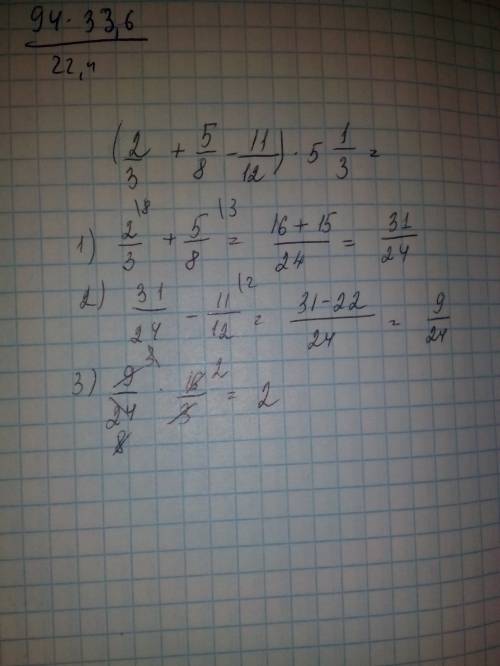 94 · 33,6
22,4
(2/3 + 5/8 - 11/12) · 5 1/3 =
1) 2/3 \8 + 5/8 \3 = 16+15/24 = 31/24
2) 31/24 - 11/12 \2 = 31-22/24 = 9/24
3) 9/24 3 8 · 16/3 2 = 2